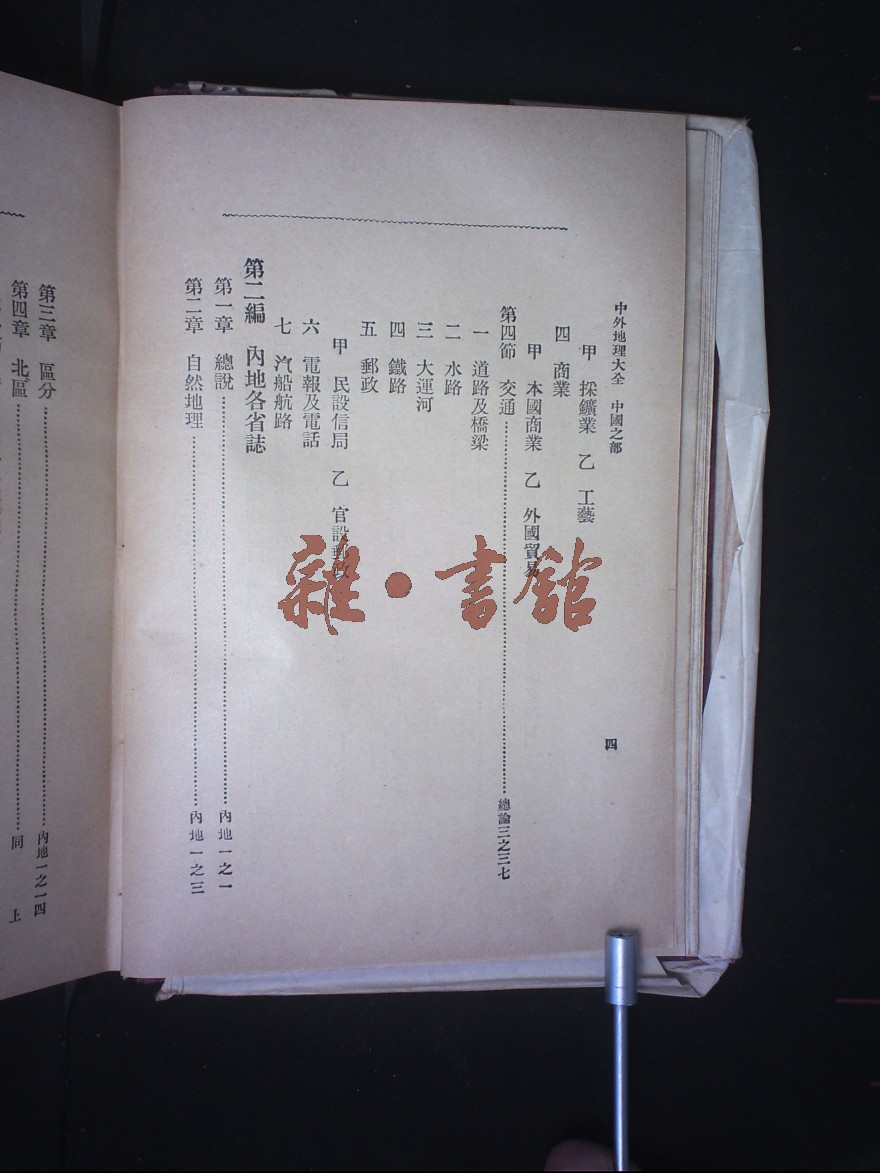 中外地理大全　中國之部
四
甲　採鑛業　乙　工藝
四　商業
甲　本國商業　乙　外國貿易
第四節　交通……總論三之三七
一　道路及橋梁
二　水路
三　大運河
四　鐵路
五　郵政
甲　民設信局　乙　官設郵政
六　電報及電話
七　汽船航路
第二編　內地各省誌
第一章　總說……內地一之一
第二章　自然地理……內地一之三
第三章　區分……內地一之一四
第四章　北區……同　上
雜・書館